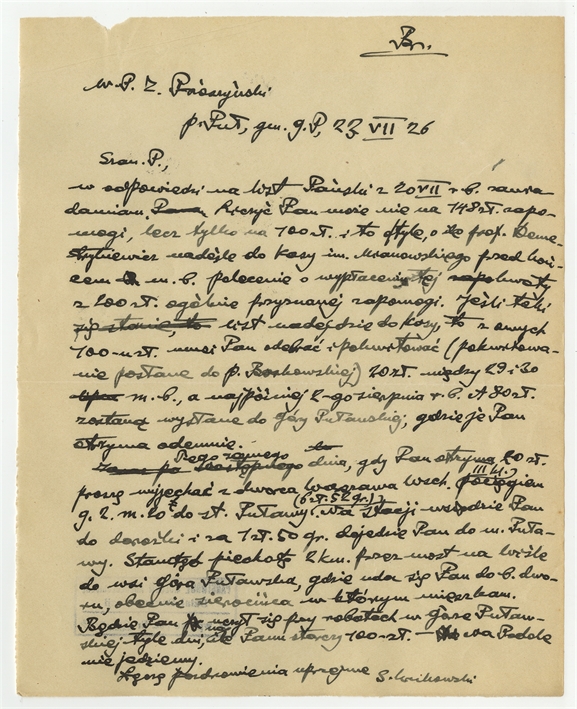 Br.
W.P. Z.
p. Puł, gm. g. P, 23 VII 26
Szan. P.,
w odpowiedzi na list Pański z 20 VII r. b. zawia
damiam, liczyć Pan może nie na 148 zł. zapo-
mogi, lecz tylko na 100 zł. i to o tyle, o ile prof. Deme-
trykiewicz nadeśle do Kasy im. Mianowskiego przed koń-
cem m. b. polecenie o wypłaceniu tej kwoty
z 200 zł. ogólnie przyznanej zapomogi. Jeśli taki
list nadejdzie do Kasy, to z owych
100-u zł. musi Pan odebrać i pokwitować (pokwitowa-
nie posłane do p. ) 20 zł. między 29 i 30
m. b., a najpóźniej 2-go sierpnia r. b. A 80 zł.
zostaną wysłane do Góry Puławskiej, gdzie je Pan
otrzyma odemnie.
Tego samego dnia, gdy Pan otrzyma 20 zł.
proszę wyjechać z dworca Warszawa Wsch. pociągiem
(6 zł. 52 gr.) III kl.)
g. 2. m. 20 do st. Puławy. Na stacji wsiądzie Pan
do dorożki i za 1 zł. 50 gr. dojedzie Pan do m. Puła-
wy. Stamtąd piechotą 2 km. przez most na Wiśle
do wsi Góra Puławska, gdzie uda się Pan do b. dwo-
ru, obecnie sierocińca w którym mieszkam.
Będzie Pan uczył się przy robotach w Górze Puław-
skiej tyle dni, ile Panu starczy 100-zł. — na Podole
nie jedziemy.
Łączę pozdrowienia uprzejme S. Krukowski